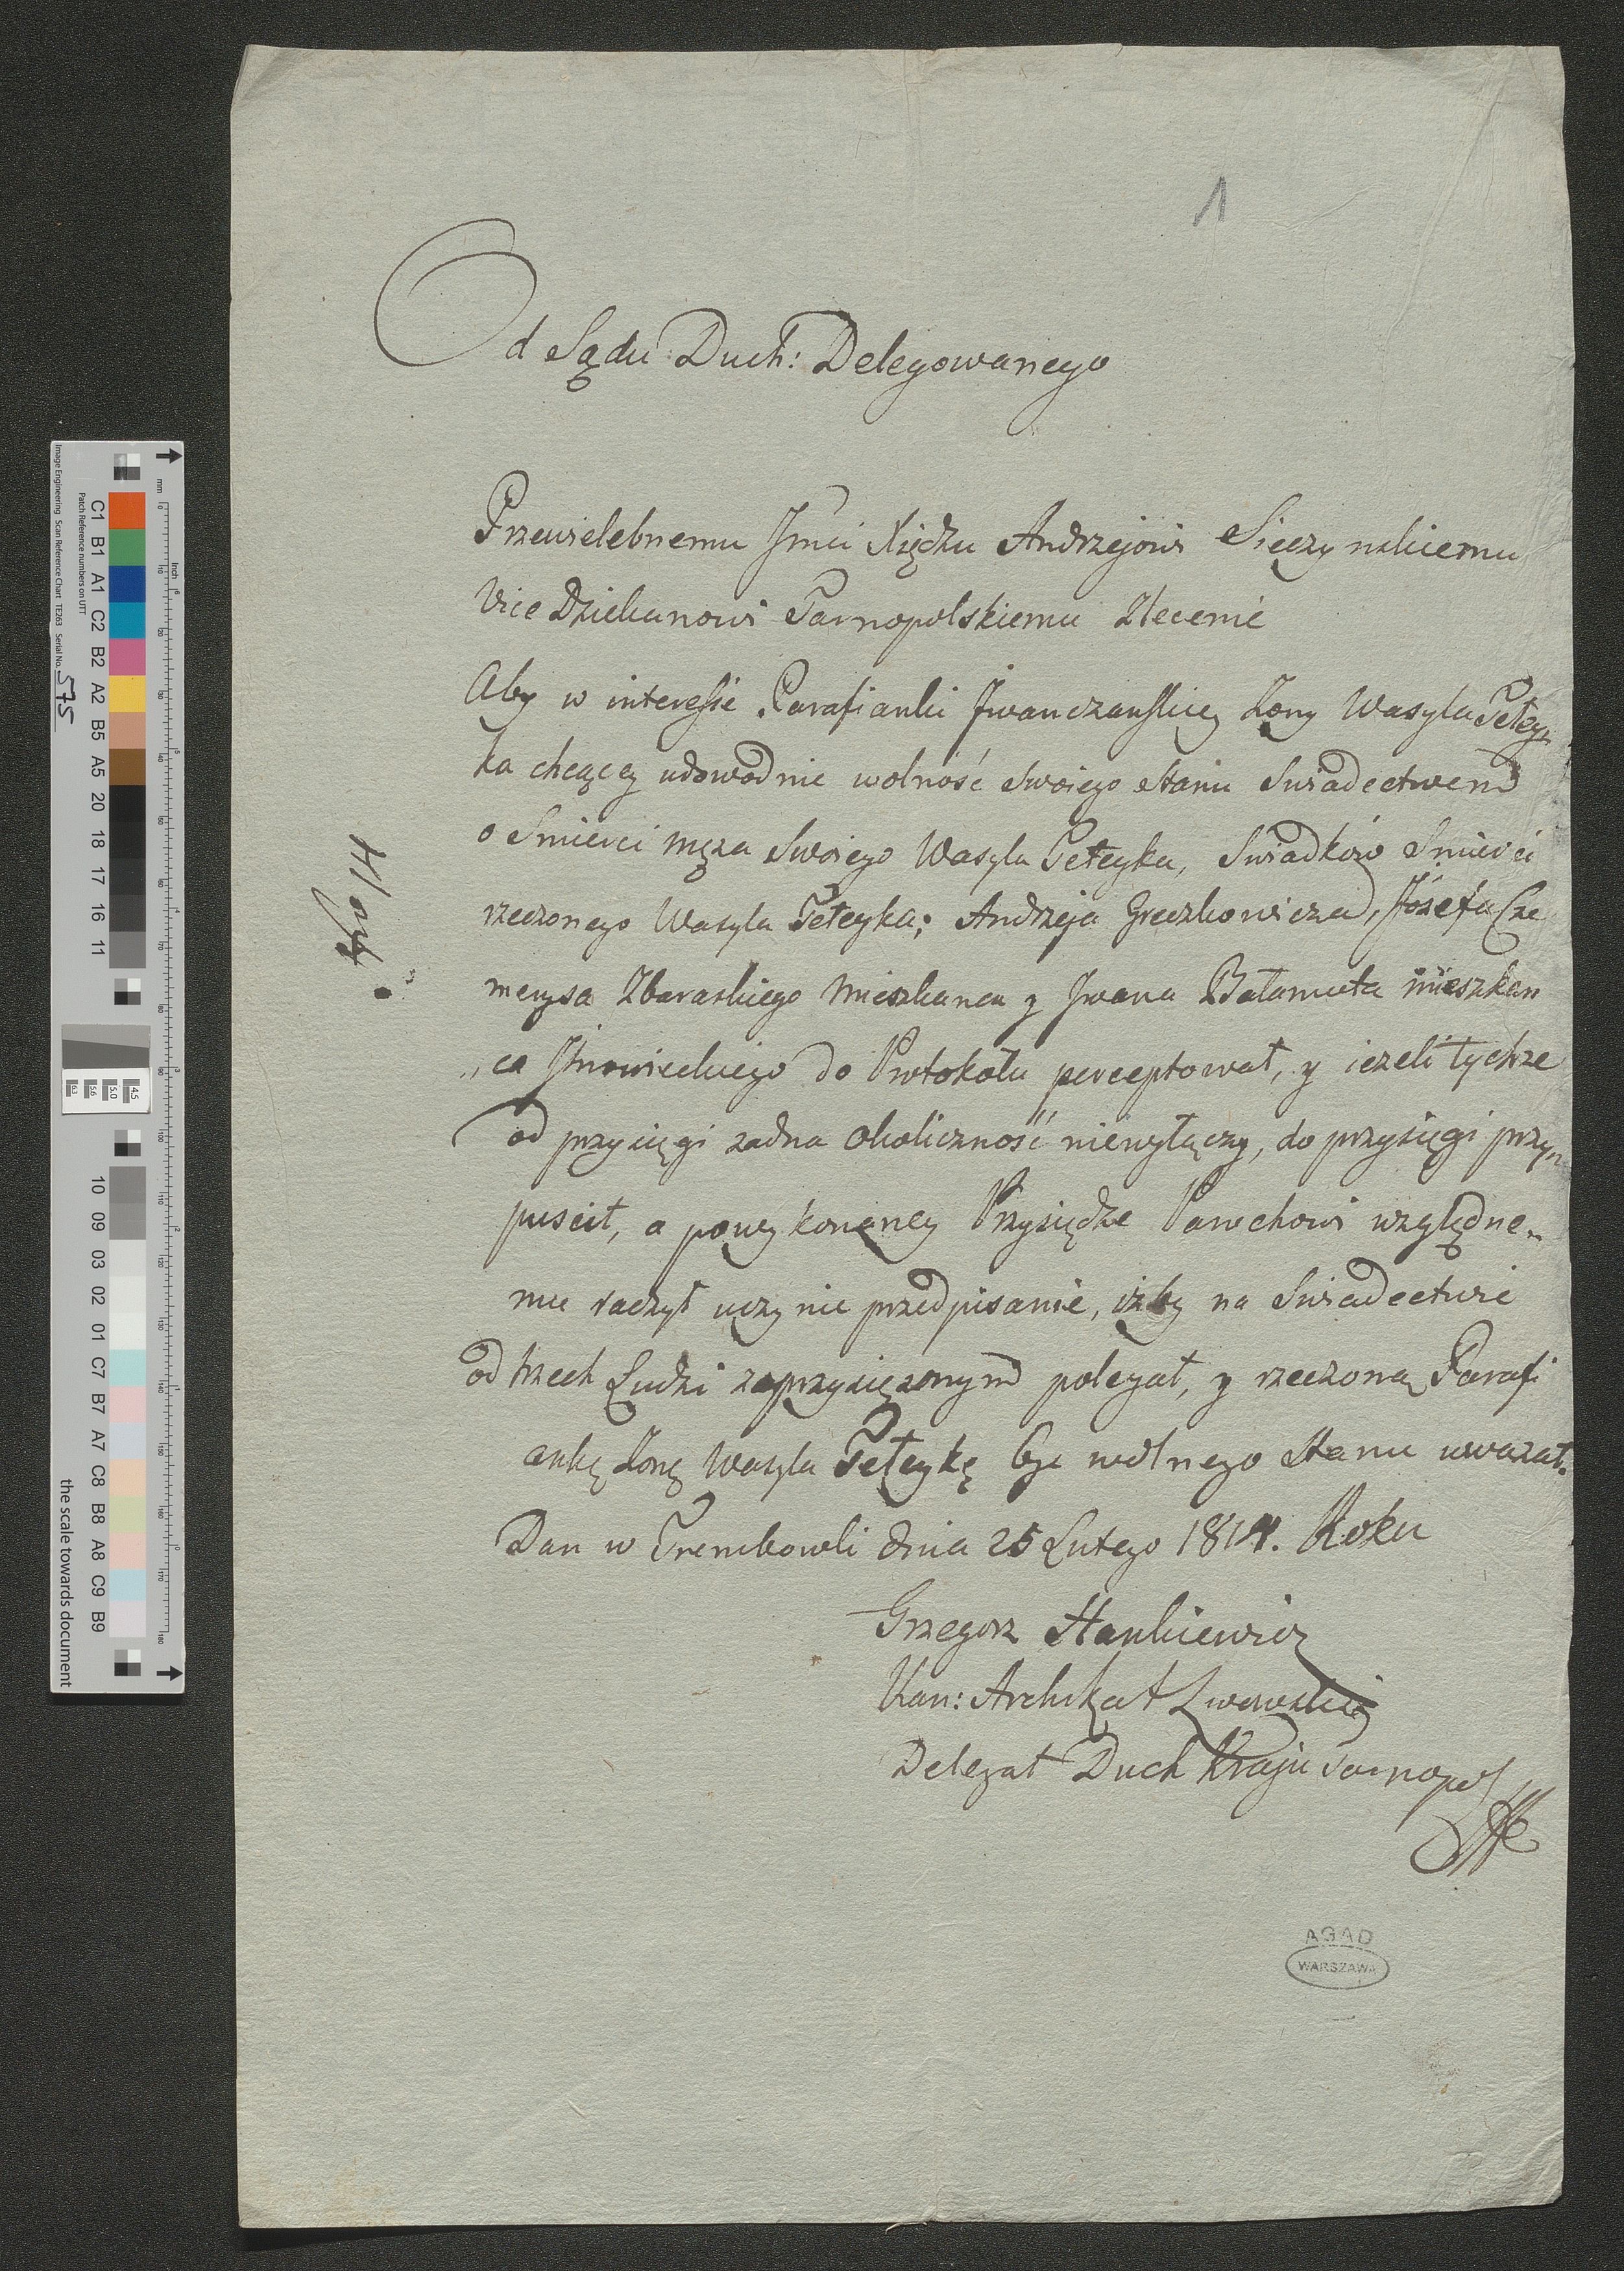 1
Od Sądu Duch: Delegowanego
Przewielebnemu Jmci Xiędzu Andrzejowi Sięczynskiemu
Vice Dziekanowi Tarnopolskiemu Zlecenie
Aby w interessie Parafianki Jwanczanskiey Zony Wasyla Peley„
ka chcącey udowodnic wolność swoiego stanu Swiadectwem
o Smierci męza Swoiego Wasyla Peleyka, Swiadków Smierci
rzeczonego Wasyla Peleyka; Andrzeja Greczkowicza, Józefa Cze
merysa Zbaraskiego Mieszkanca y Jwana Bałamuta mieszkan
„ca do Protokołu perceptował, y iezeli tychze
od przysięgi zadna okoliczność niewyłączy, do przysięgi przy„
puscił, a po wykonaney Przysiędze Parochowi względne„
mu raczył uczynic przedpisanie, izby na Swiadectwie
od trzech Ludzi zaprzysięzonym polegał, y rzeczoną Parafi
ankę Zonę Wasyla Peleykę byc wolnego Stanu uwazał.
Dan w Trembowli dnia 25 Lutego 1814. Roku
Grzegorz Stankiewicz
Kan: Archikat Lwowski
Delegat Duch Kraju Tarnopol
AGAD
WARSZAWA
Image Engineering Scan Reference Chart TE263 Serial No. 575
Patch Reference numbers on UTT
C1 B1 A1 C2 B2 A2 B5 A5 20 18 17 16 11
10 09 03 02 01 C7 B7 A7 C8 B8 A8 C9 B9
mm
inch
the scale towards document